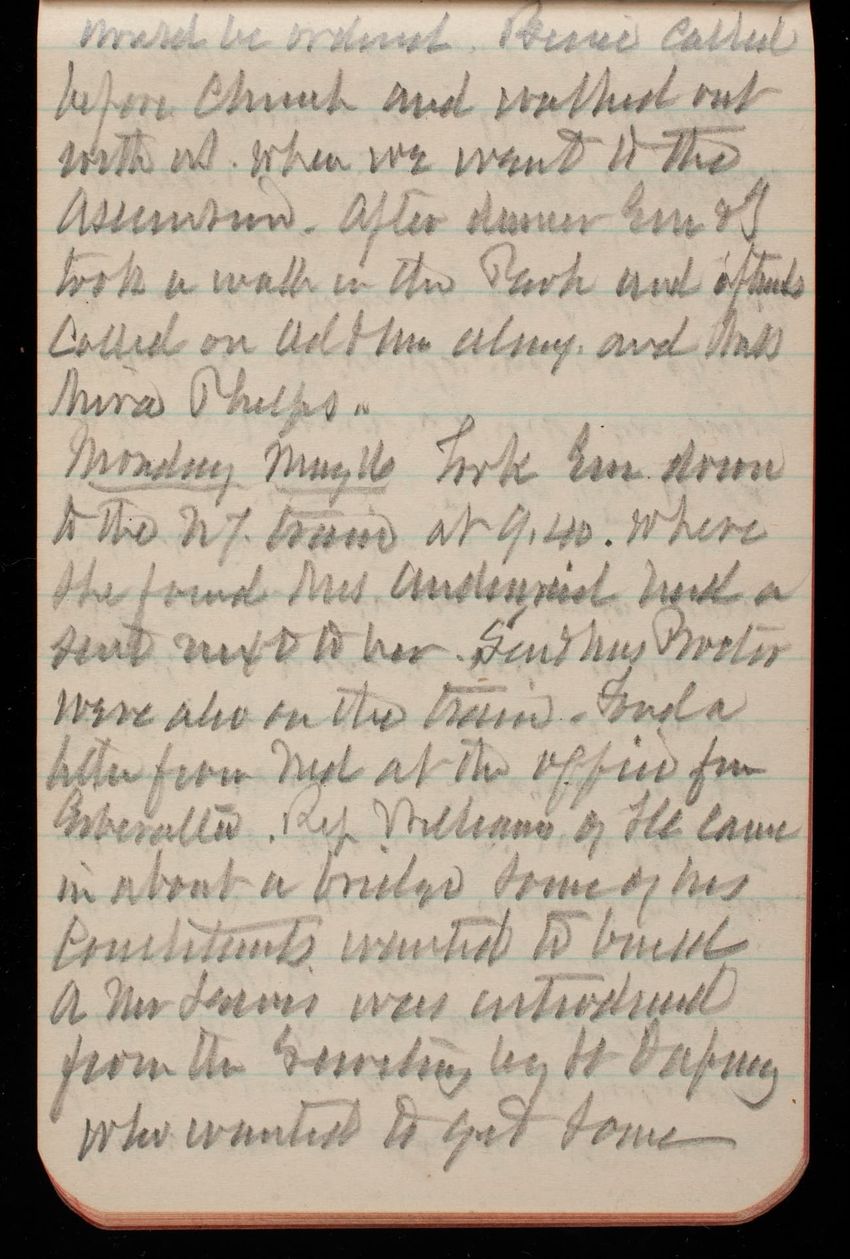 would be ordered. Bessie called
before Church and walked out
with us. when we went to the
Ascension. After dinner Em & I
took a walk in the Park and aftwds
called on Ad & Mrs Almy. and Miss
Mira Phelps.
Monday May 16 Took Em down
to the N.Y. train at 9.40. where
she found Mrs Audenreid had a
seat next to her. Sen & Mrs Proctor
were also on the train. Had a
letter from Ned at the office from
Rep Williams of Ill came
in about a bridge some of his
Constituents wanted to build
A Mr was introduced
from the Secretary by Lt
who wanted to get some